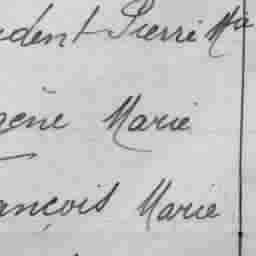 dent Pierre Mie
gène Marie
ançois Marie